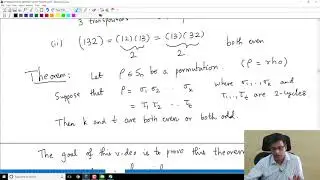 3 transpositions
(ii) (132) = (12)(13) = (13)(32) both even
2 2
Theorem: Let ρ ∈ Sn be a permutation. (ρ = rho)
Suppose that ρ = σ1 σ2 ... σk where σ1,..,σk and
= τ1 τ2 ... τt τ1,..,τt are 2-cycles
Then k and t are both even or both odd.
The goal of this video is to prove this theorem